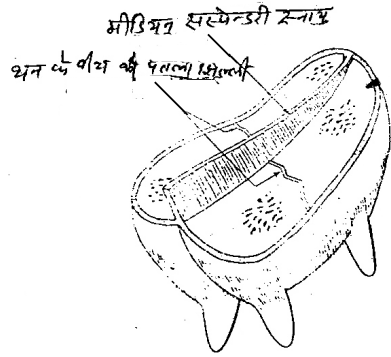 मीडियन सस्पेन्डरी स्नायु
थन के बीच की पतली झिल्ली